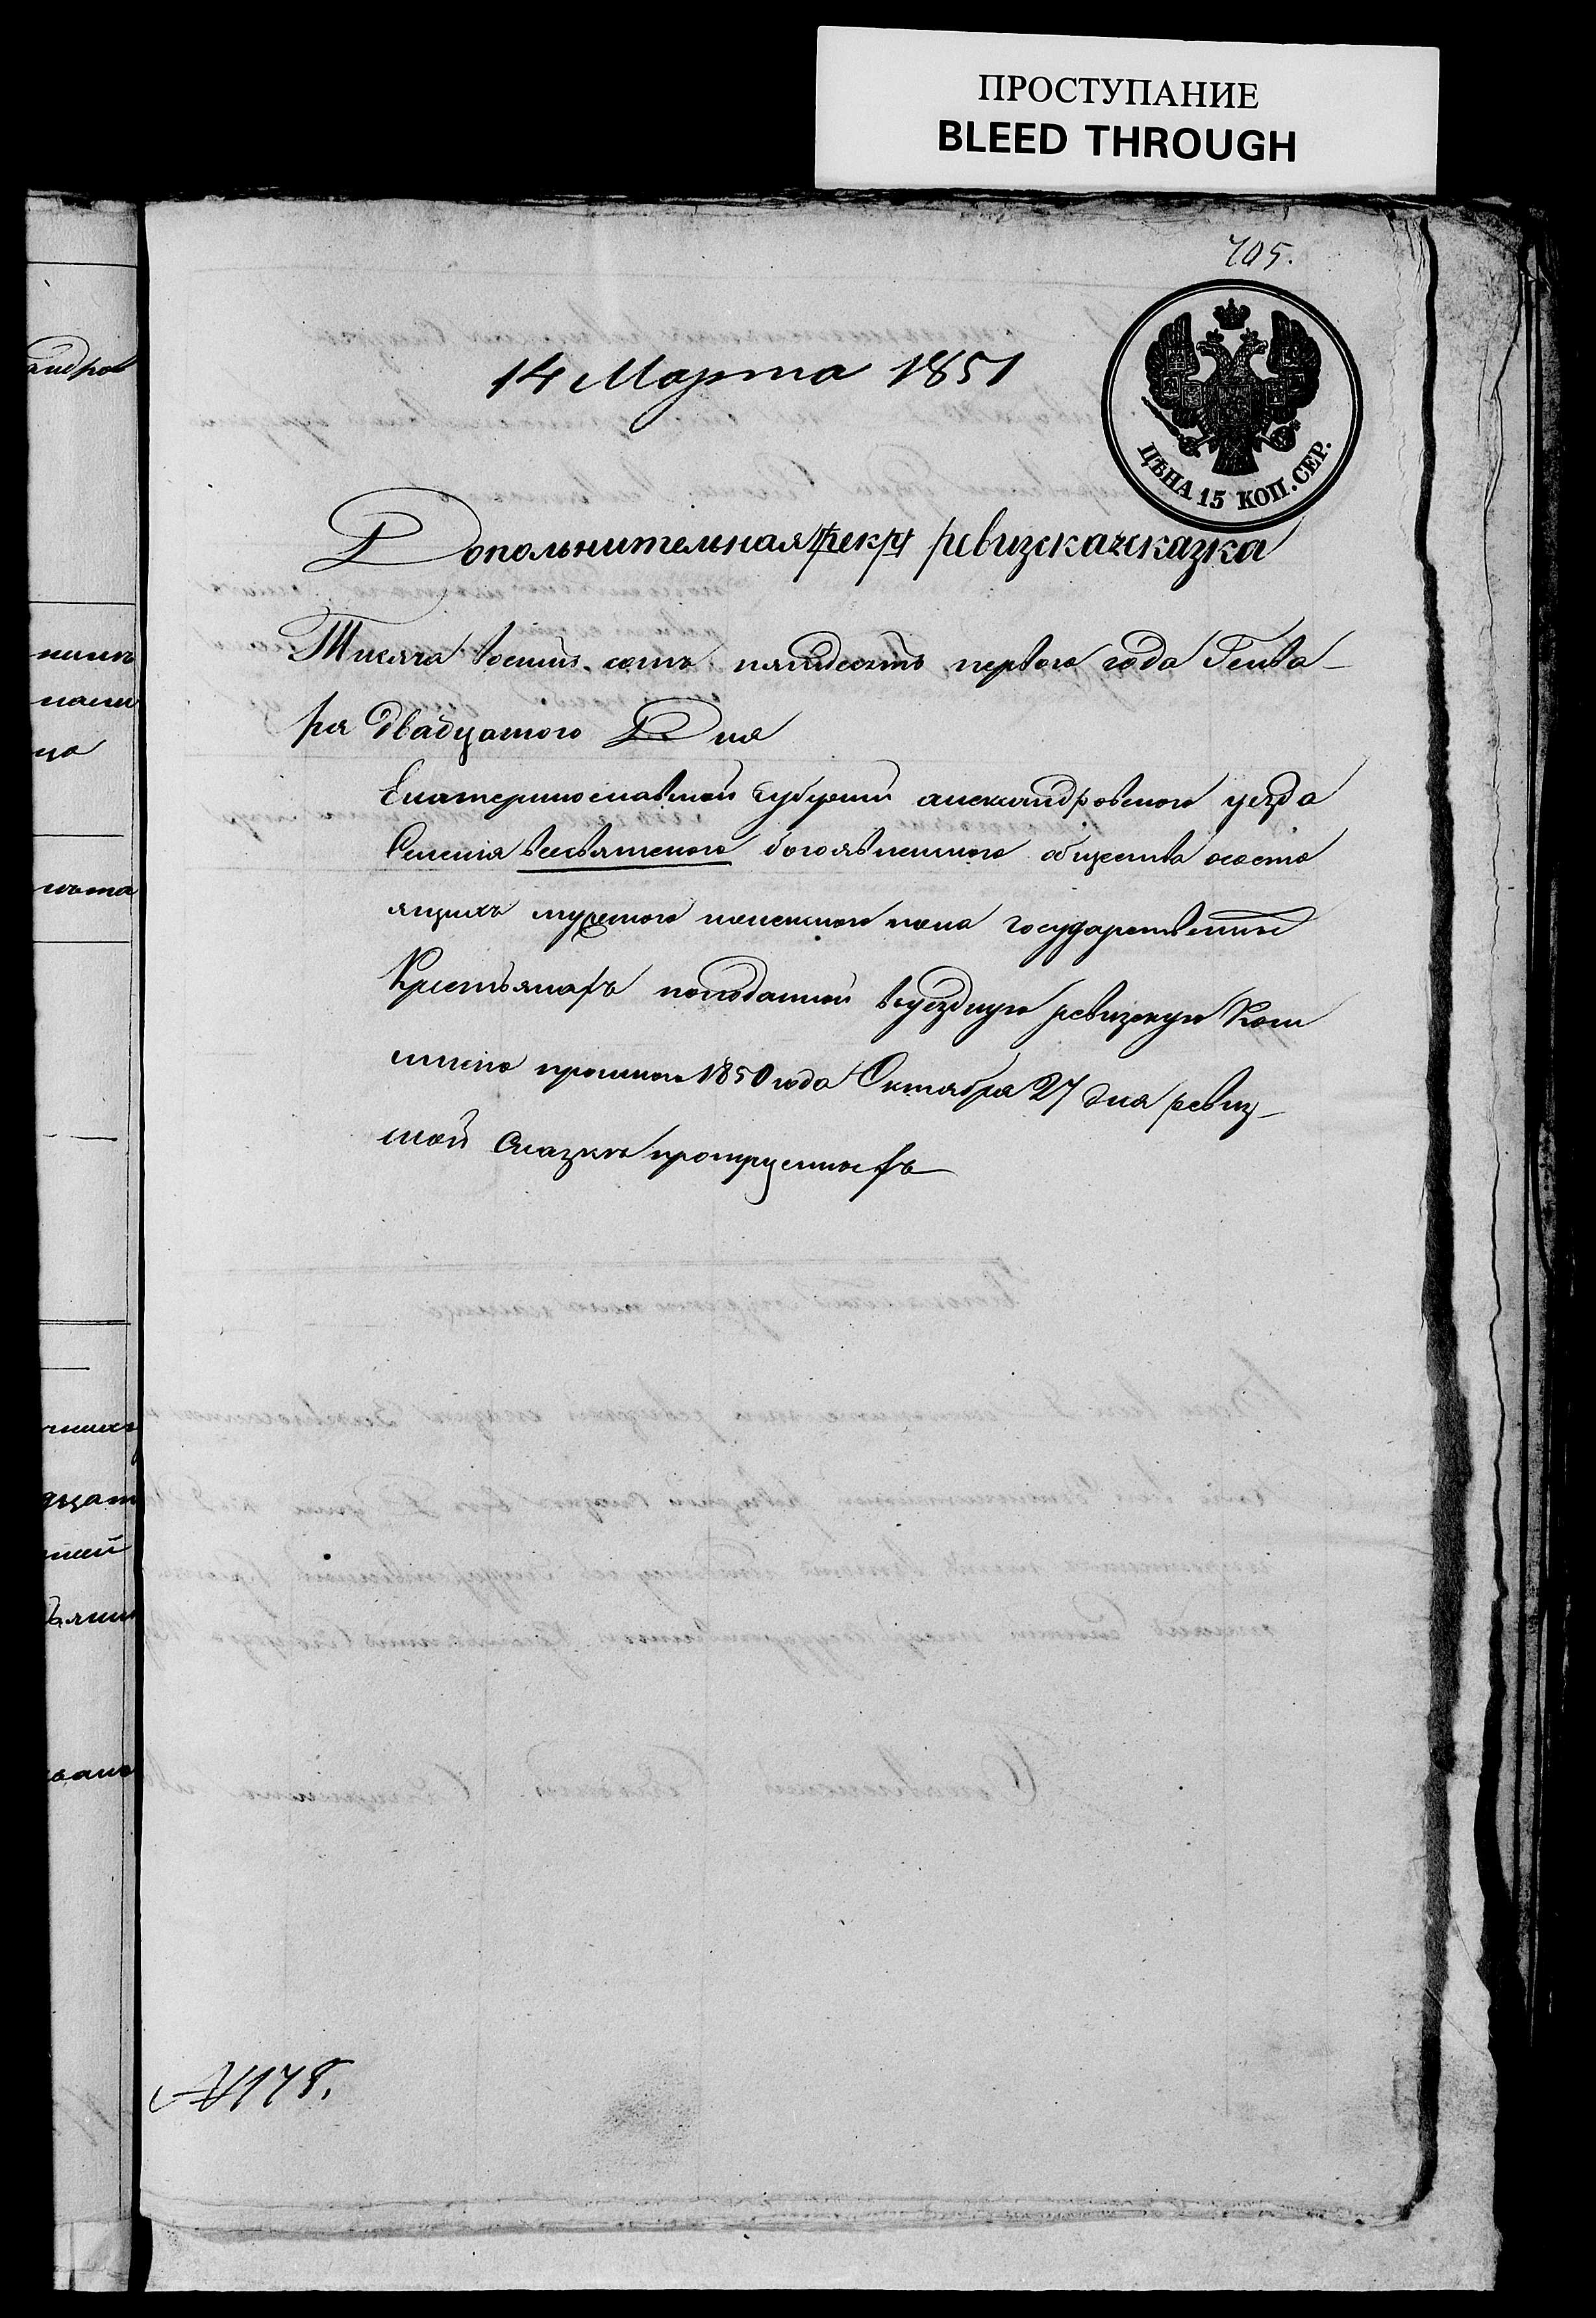 ПРОСТУПАНИЕ
BLEED THROUGH
705.
14 Марта 1851
ЦѢНА 15 КОП. СЕР.
Допольнительная ревизскаясказка
Тисяча восемь сотъ пятдесятъ первого года Генва-
ря двадцатого Дня
Екатеринославской Губернии александровского уезда
Селения всесвятского богоявленского общества ососто
ящихъ мужеского женского пола государственныхъ
Крестьянахъ поподанной вуездную ревизскую Коми
мисию прошлого 1850 года Октября 27 дня ревиз-
ской Сказки пропущенныхъ
№ 178.